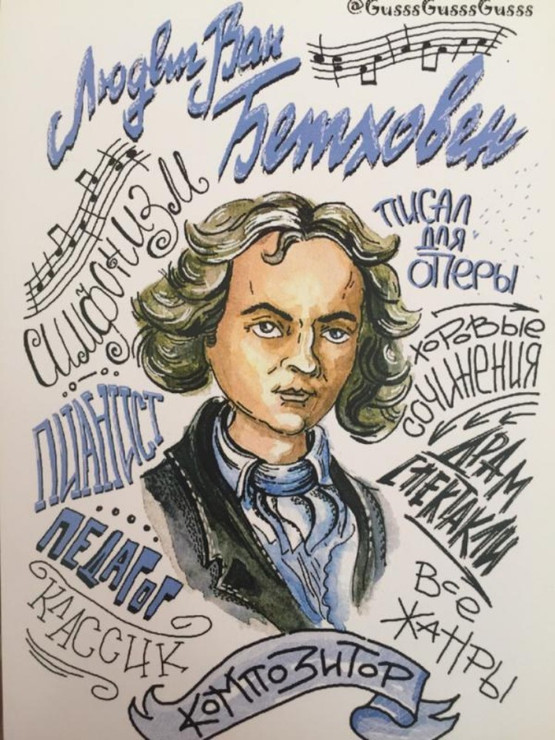 @GusssGusssGusss
Людвиг Ван
Бетховен
симфонизм
писал
для
оперы
хоровые
сочинения
пианист
драм
спектакли
педагог
все
жанры
классик
композитор